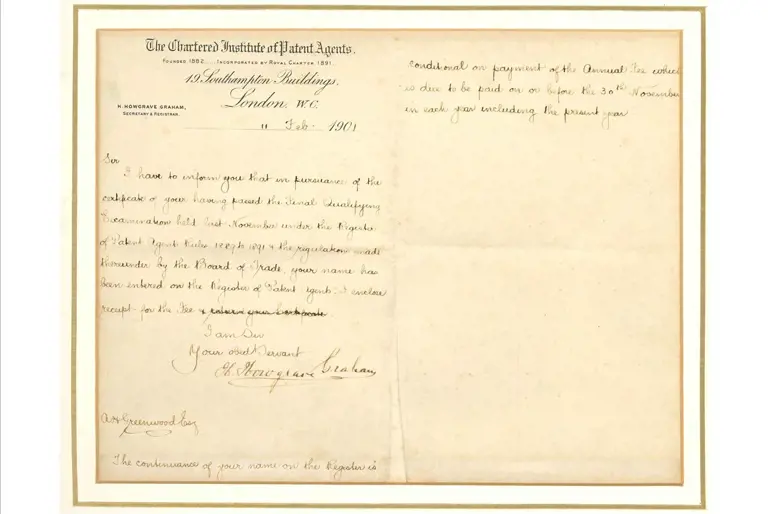 The Chartered Institute of Patent Agents.
Founded 1882..... Incorporated by Royal Charter 1891.
19, Southampton Buildings,
London, W.C.
H. HOWGRAVE GRAHAM,
SECRETARY & REGISTRAR.
11 Feb. 1901
Sir
I have to inform you that in pursuance of the
certificate of your having passed the Final Qualifying
Examination held last November under the Register
of Patent Agents Rules 1889 & 1891 & the regulations made
thereunder by the Board of Trade, your name has
been entered on the Register of Patent Agents. I enclose
receipt for the Fee & return your certificate.
I am Sir
Your obedt Servant
H. Howgrave Graham
A H Greenwood Esq
The continuance of your name on the Register is
conditional on payment of the Annual Fee which
is due to be paid on or before the 30th November
in each year including the present year